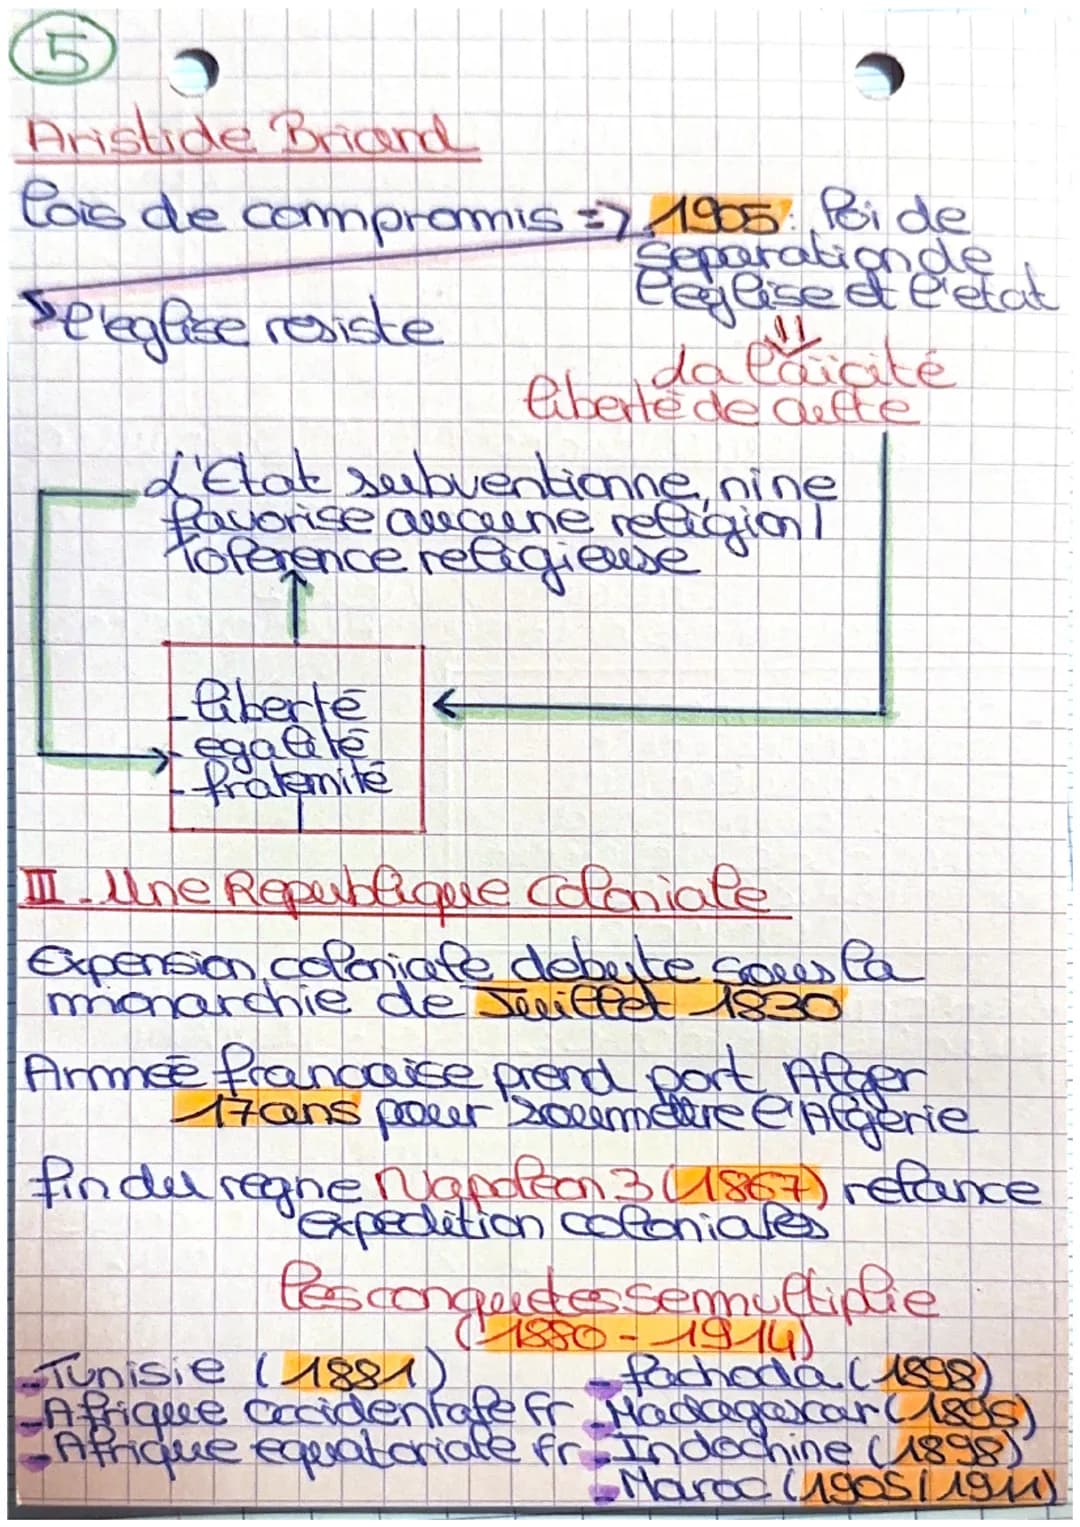 5
Aristide Briand
lois de compromis => 1905: loi de
separation de
l'eglise et l'etat
l'eglise resiste
la laïcité
liberté de culte
L'Etat subventionne, ni ne
favorise aucune religion!
Tolerence religieuse
- liberté
- egalité
- fraternité
III - Une Republique Coloniale
Expension coloniale debute sous la
monarchie de Juillet 1830
Armée francaise prend port Alger
17 ans pour soumettre l'Algerie
fin du regne Napoléon 3 (1867) relance
expedition coloniales
les conquetes semmultiplie
(1880 - 1914)
- Tunisie (1881)
- Afrique occidentale fr
- Afrique equatoriale fr
- fachoda (1898)
- Madagascar (1895)
- Indochine (1898)
- Maroc (1905/1911)